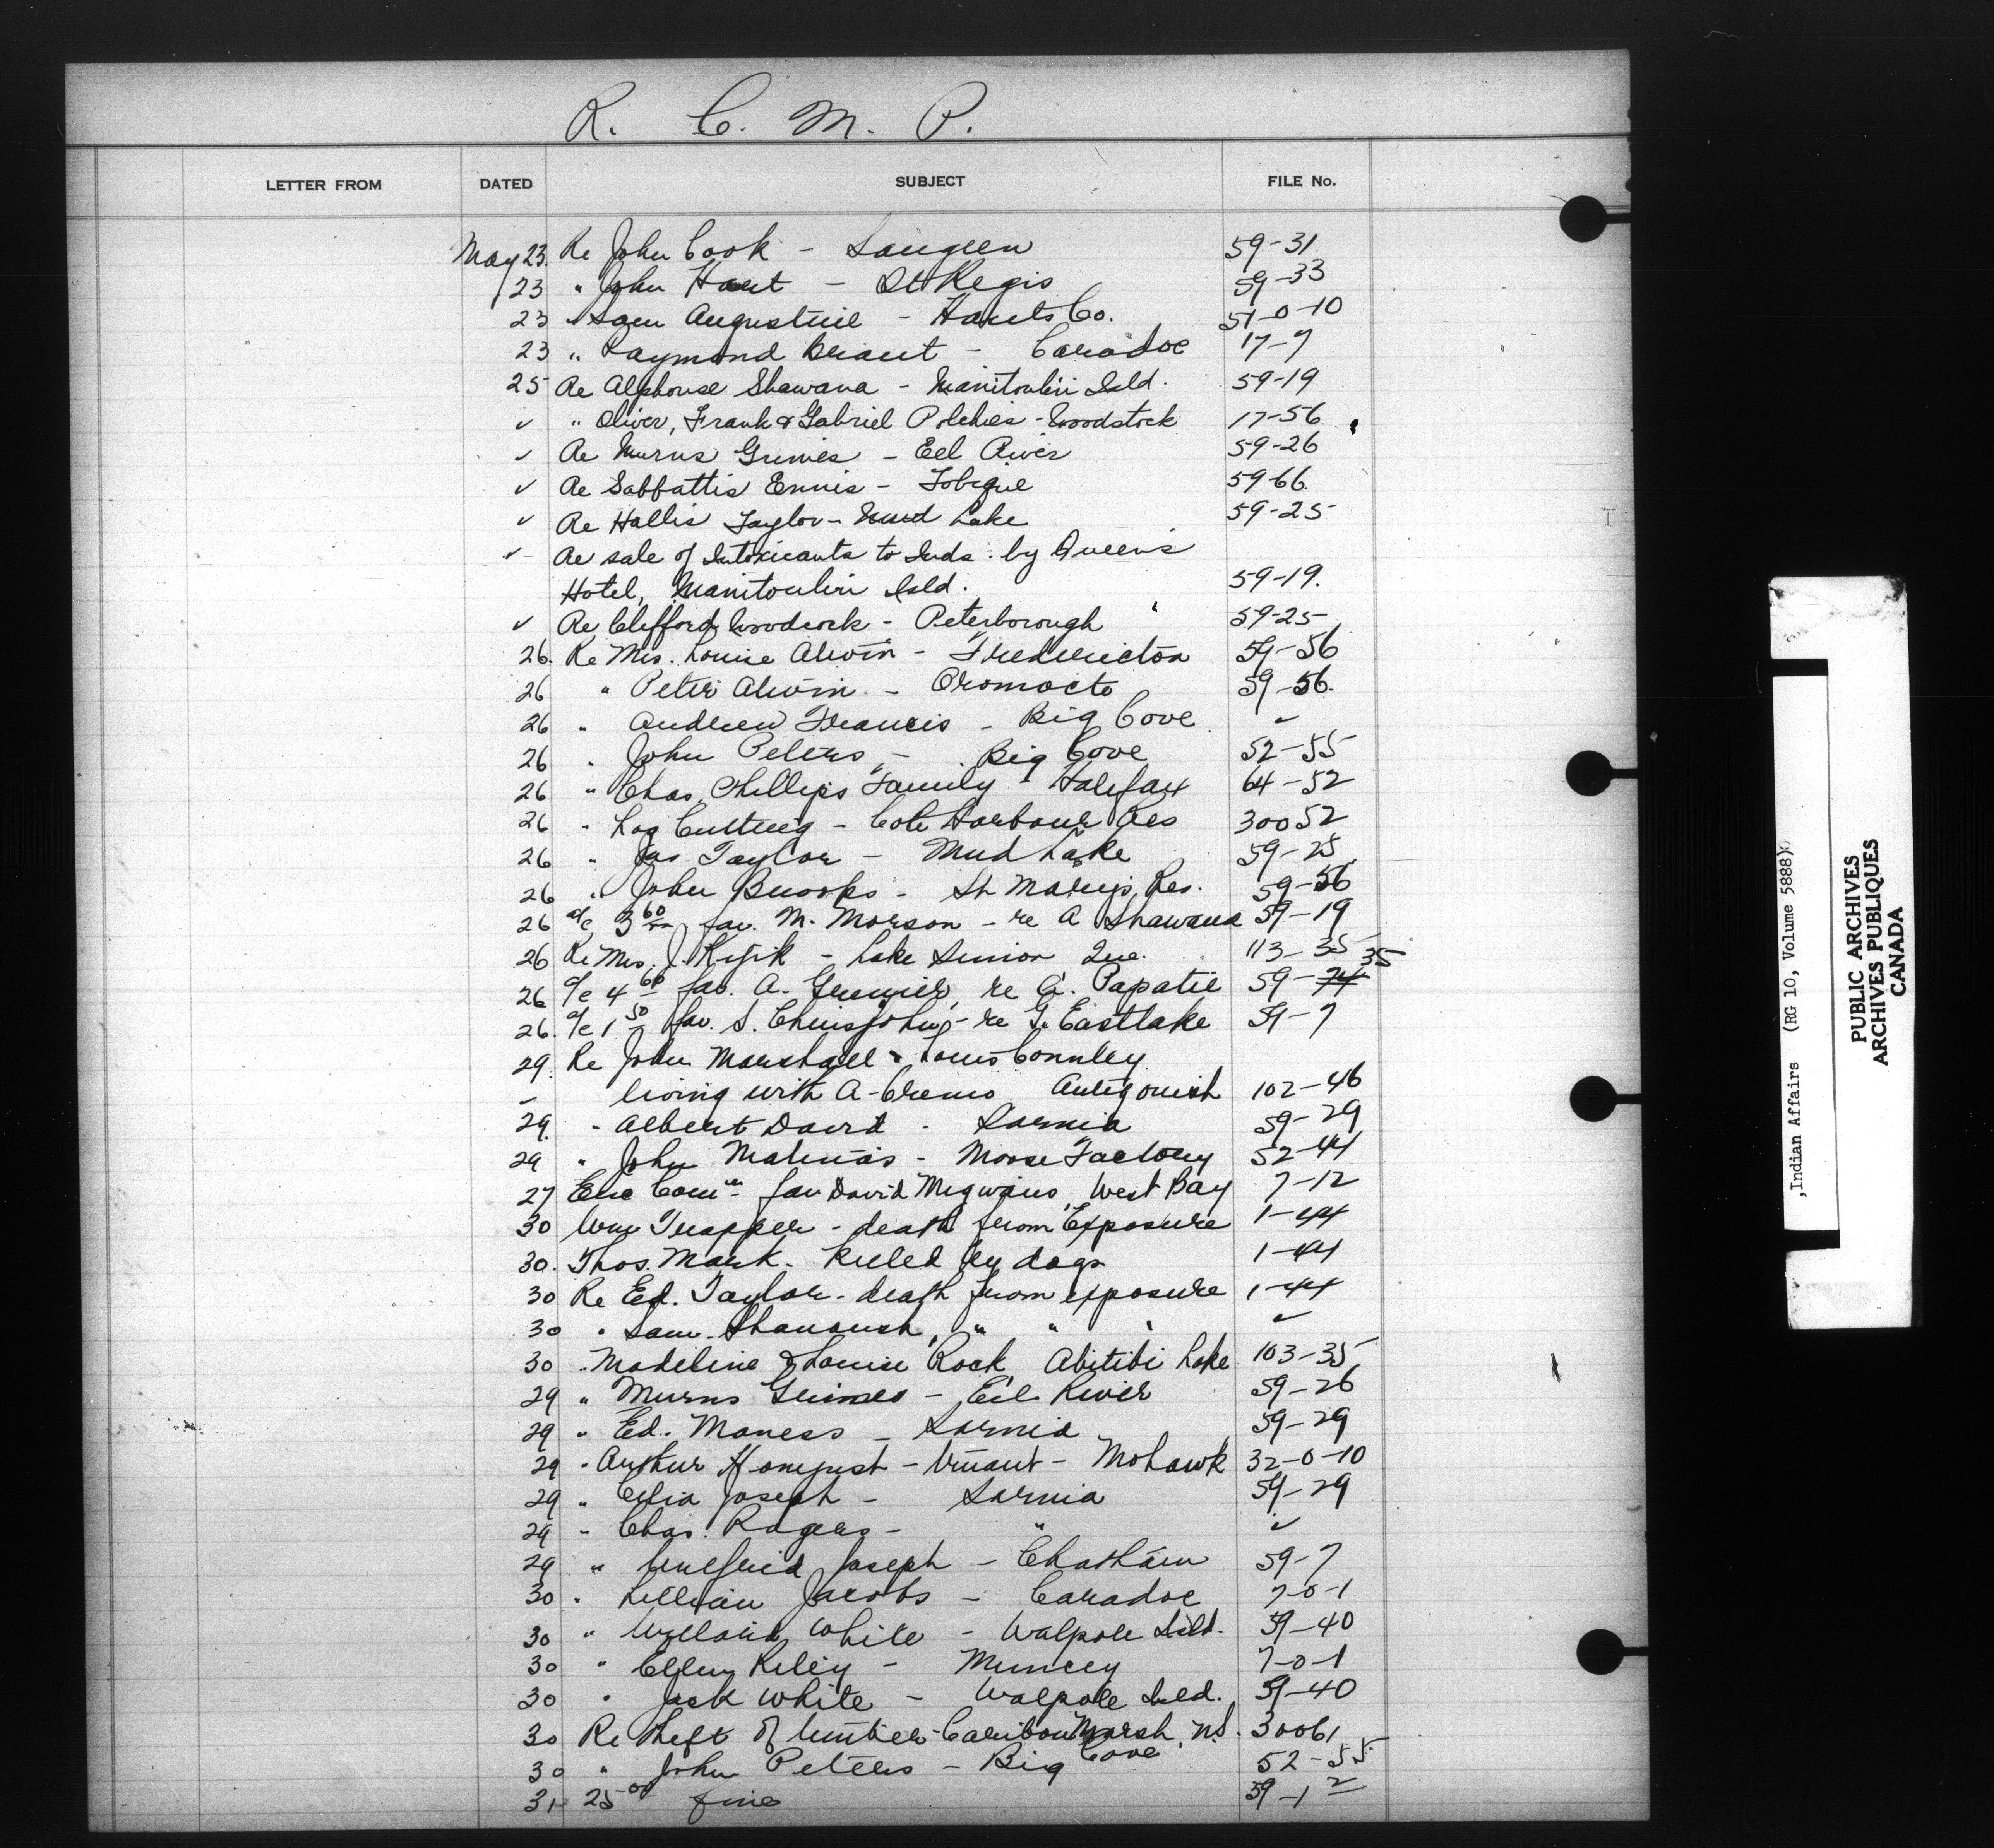 R. C. M. P.
LETTER FROM DATED SUBJECT FILE No.
May 23. Re John Cook - Saugeen 59-31
23 " John Hart - St Regis 59-33
23 " Sam Augustine - Hants Co. 51-0-10
23 " Raymond Brant - Caradoc 17-7
25 Re Alphonse Shawana - Manitoulin Isld. 59-19
✓ " Oliver, Frank & Gabriel Polchies - Woodstock 17-56
✓ Re Murns Grimes - Eel River 59-26
✓ Re Sabbattis Ennis - Tobique 59-66.
✓ Re Hallis Taylor - Mud Lake 59-25
✓ Re sale of Intoxicants to Inds. by Queen's
Hotel, Manitoulin Isld. 59-19.
✓ Re Clifford Woodcock - Peterborough 59-25
26. Re Mrs. Louise Alwin - Fredericton 59-56
26 " Peter Alwin - Oromocto 59-56.
26 " Andrew Francis - Big Cove ✓
26 " John Peters - Big Cove 52-55
26 " Chas. Phillips Family - Halifax 64-52
26 " Log Cutting - Cole Harbour Res 30052
26 " Jas Taylor - Mud Lake 59-25
26 " John Brooks - St Mary's Res. 59-56
26 a/c 3 60 fav. M. Morson - re A Shawana 59-19
26 Re Mrs. J. Kijik - Lake Simon Que. 113-35
26 a/c 4 60 fav. A. Grenier, re G. Papatie 59-74 35
26. a/c 1 50 fav. S. Chrisjohn - re G. Eastlake 59-7
29. Re John Marshall & Louis Connley
living with A-Cremo Antigonish 102-46
29. " Albert David - Sarnia 59-29
29 " John Matinas - Moose Factory 52-44
27 Ele Com fav David Migwans, West Bay 7-12
30 Wm Trapper - death from Exposure 1-44
30. Thos. Mark - Killed by dogs 1-44
30 Re Ed. Taylor - death from exposure 1-44
30 " Sam. " " " ✓
30 " Madeline & Louise Rock Abitibi Lake 103-35
29 " Murns Grimes - Eel River 59-26
29 " Ed. Maness - Sarnia 59-29
29 " Arthur - truant - Mohawk 32-0-10
29 " Celia Joseph - Sarnia 59-29
29 " Chas. Rogers - " ✓
29 " Winefrid Joseph - Chatham 59-7
30 " Lillian Jacobs - Caradoc 7-0-1
30 " White - Walpole Isld. 59-40
30 " Ellen Riley - Muncey 7-0-1
30 " Jack White - Walpole Isld. 59-40
30 Re theft of timber - Caribou Marsh, N.S. 30061
30 " John Peters - Big Cove 52-55
31 25 00 fine 59-12
,Indian Affairs (RG 10, Volume 5888)
PUBLIC ARCHIVES
ARCHIVES PUBLIQUES
CANADA